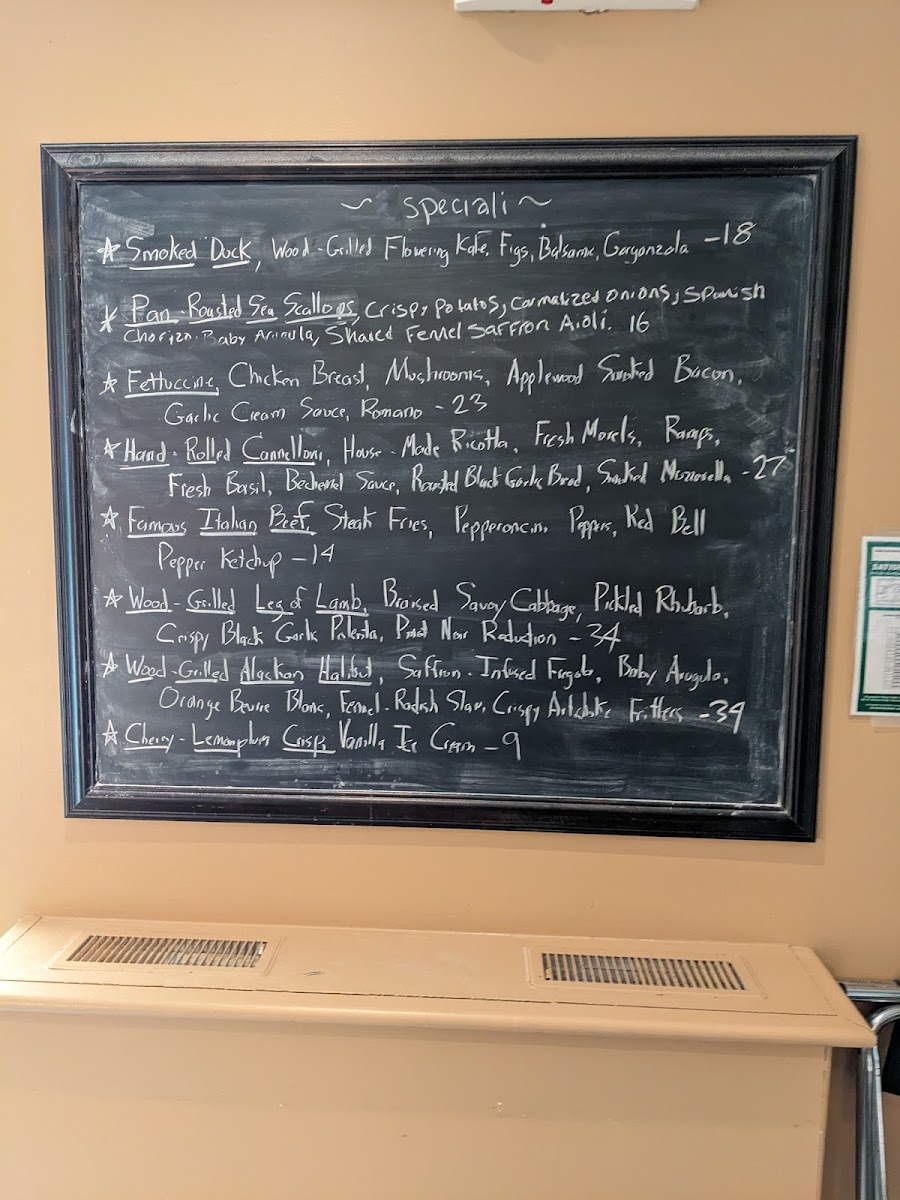 ~ Speciali ~
☆ Smoked Duck, Wood-Grilled Flowering Kale, Figs, Balsamic, Gorgonzola -18
☆ Pan-Roasted Sea Scallops, Crispy Potatos, Carmalized onions, Spanish
Chorizo, Baby Arugula, Shaved Fennel Saffron Aioli. 16
☆ Fettuccine, Chicken Breast, Mushrooms, Applewood Smoked Bacon,
Garlic Cream Sauce, Romano - 23
☆ Hand-Rolled Cannelloni, House-Made Ricotta, Fresh Morels, Ramps,
Fresh Basil, Bechemel Sauce, Roasted Black Garlic Bread, Smoked Mozzarella -27
☆ Famous Italian Beef, Steak Fries, Pepperoncini Peppers, Red Bell
Pepper Ketchup -14
☆ Wood-Grilled Leg of Lamb, Braised Savoy Cabbage, Pickled Rhubarb,
Crispy Black Garlic Polenta, Pinot Noir Reduction - 34
☆ Wood-Grilled Alaskan Halibut, Saffron-Infused Fregola, Baby Arugula,
Orange Beurre Blanc, Fennel-Radish Slaw, Crispy Artichoke Fritters -34
☆ Cherry-Lemonplum Crisp, Vanilla Ice Cream -9